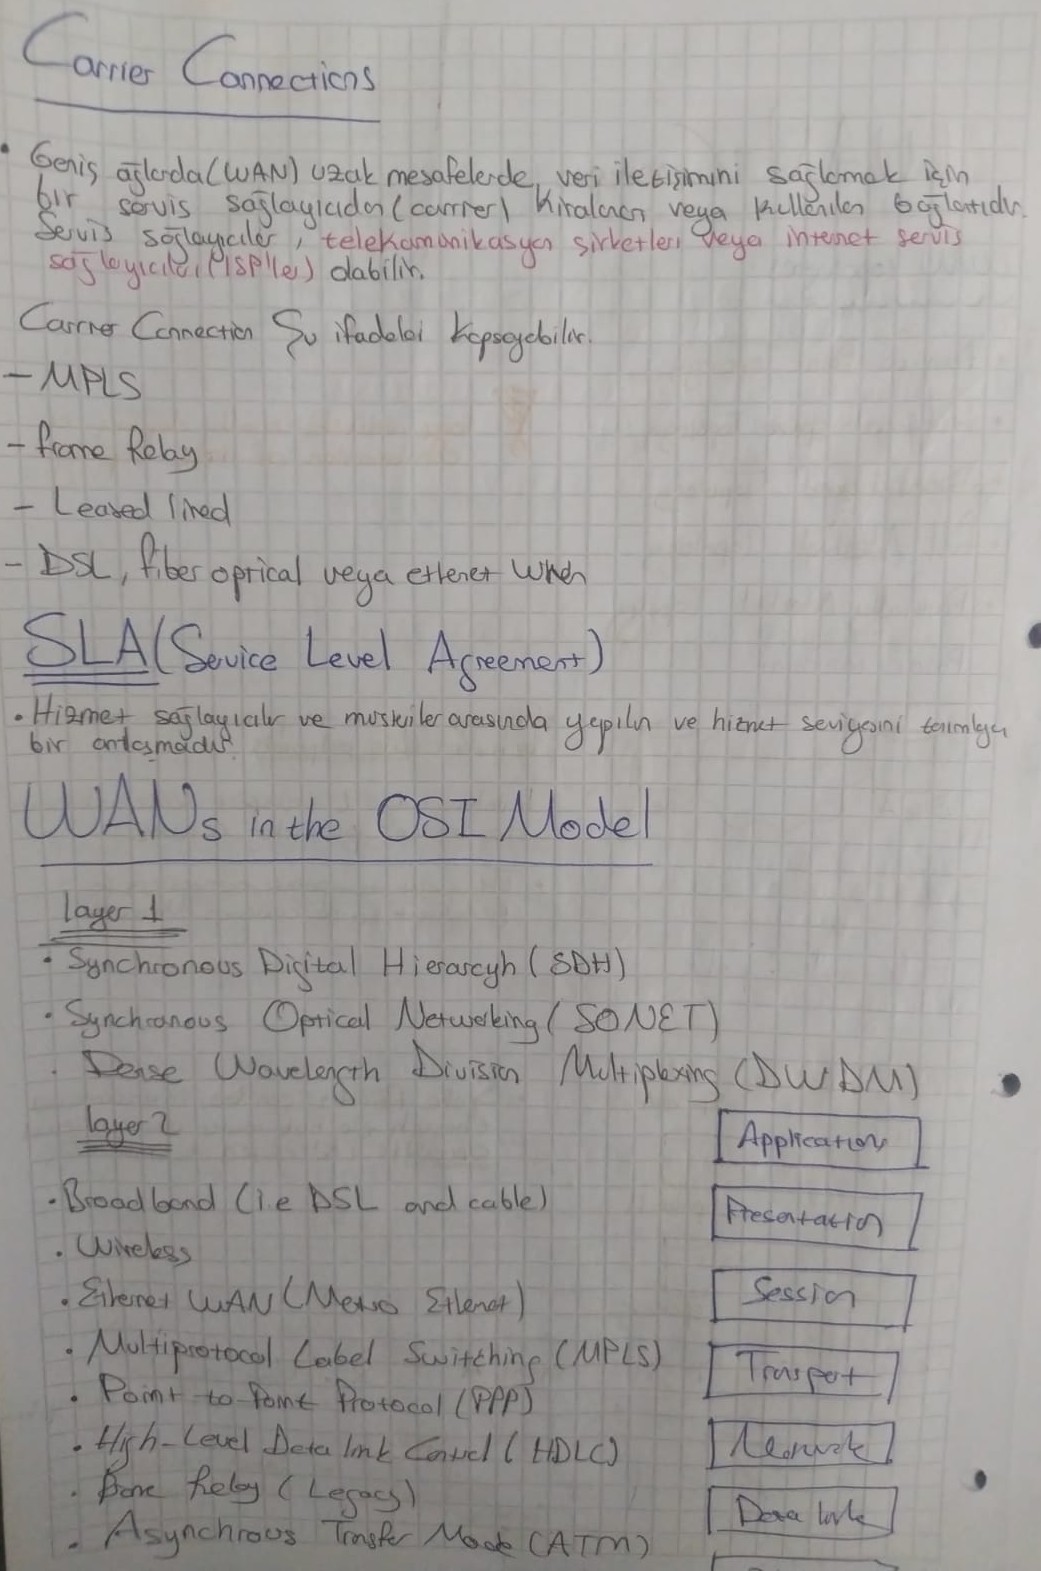 Carrier Connections
• Geniş ağlarda (WAN) uzak mesafelerde, veri iletişimini sağlamak için
bir servis sağlayıcıdan (carrier) kiralanan veya kullanılan bağlantıdır.
Servis sağlayıcılar, telekomünikasyon şirketleri veya internet servis
sağlayıcıları (ISP'ler) olabilir.
Carrier Connection Şu ifadeleri kapsayabilir.
- MPLS
- frame Relay
- Leased lined
- DSL, fiber optical veya ethernet
SLA (Service Level Agreement)
• Hizmet sağlayıcılar ve müşteriler arasında yapılan ve hizmet seviyesini tanımlayan
bir anlaşmadır.
WANs in the OSI Model
layer 1
• Synchronous Digital Hierarcyh (SDH)
• Synchronous Optical Networking (SONET)
. Dense Wavelength Division Multiplexing (DWDM)
layer 2
• Broadband (i.e DSL and cable)
• Wireless
• Ethernet WAN (Metro Ethernet)
• Multiprotocol Label Switching (MPLS)
• Point to-Point Protocol (PPP)
• High-Level Data link Control (HDLC)
• Frame Relay (Legacy)
• Asynchrous Transfer Mode (ATM)
Application
Presentation
Session
Transport
Network
Data link